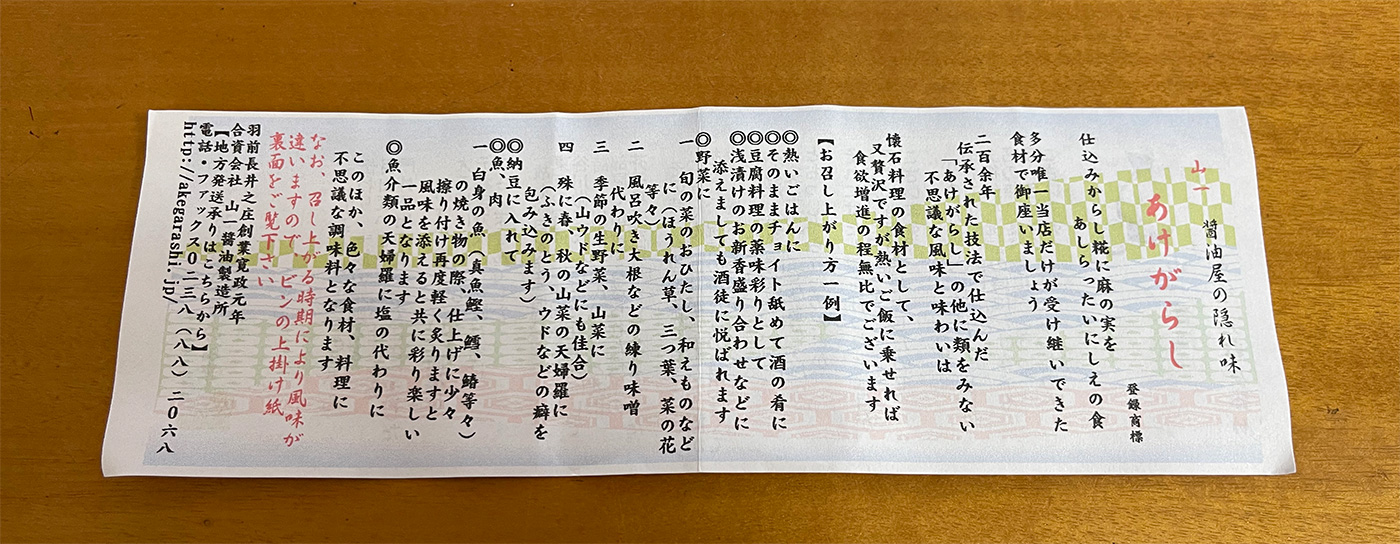 山一 醬油屋の隠れ味
あけがらし
登録商標
仕込みからし糀に麻の実を
あしらったいにしえの食
多分唯一当店だけが受け継いできた
食材で御座いましょう
二百余年
伝承された技法で仕込んだ
「あけがらし」の他に類をみない
不思議な風味と味わいは
懐石料理の食材として、
又贅沢ですが熱いご飯に乗せれば
食欲増進の程無比でございます
【お召し上がり方一例】
◎熱いごはんに
◎そのままチョイト舐めて酒の肴に
◎豆腐料理の薬味彩りとして
◎浅漬けのお新香盛り合わせなどに
添えましても酒徒に悦ばれます
◎野菜に
一 旬の菜のおひたし、和えものなど
に(ほうれん草、三つ葉、菜の花
等々)
二 風呂吹き大根などの練り味噌
代わりに
三 季節の生野菜、山菜に
(山ウドなどにも佳合)
四 殊に春、秋の山菜の天婦羅に
(ふきのとう、ウドなどの癖を
包み込みます)
◎納豆に入れて
◎魚、肉
一 白身の魚(真魚鰹、鱈、鰆等々)
の焼き物の際、仕上げに少々
擦り付け再度軽く炙りますと
風味を添えると共に彩り楽しい
一品となります
◎魚介類の天婦羅に塩の代わりに
このほか、色々な食材、料理に
不思議な調味料となります
なお、召し上がる時期により風味が
違いますので、ビンの上掛け紙
裏面をご覧下さい
羽前長井之庄創業寛政元年
合資会社 山一醬油製造所
【地方発送承りはこちらから】
電話・ファックス〇二三八(八八)二〇六八
http://akegarashi.jp/